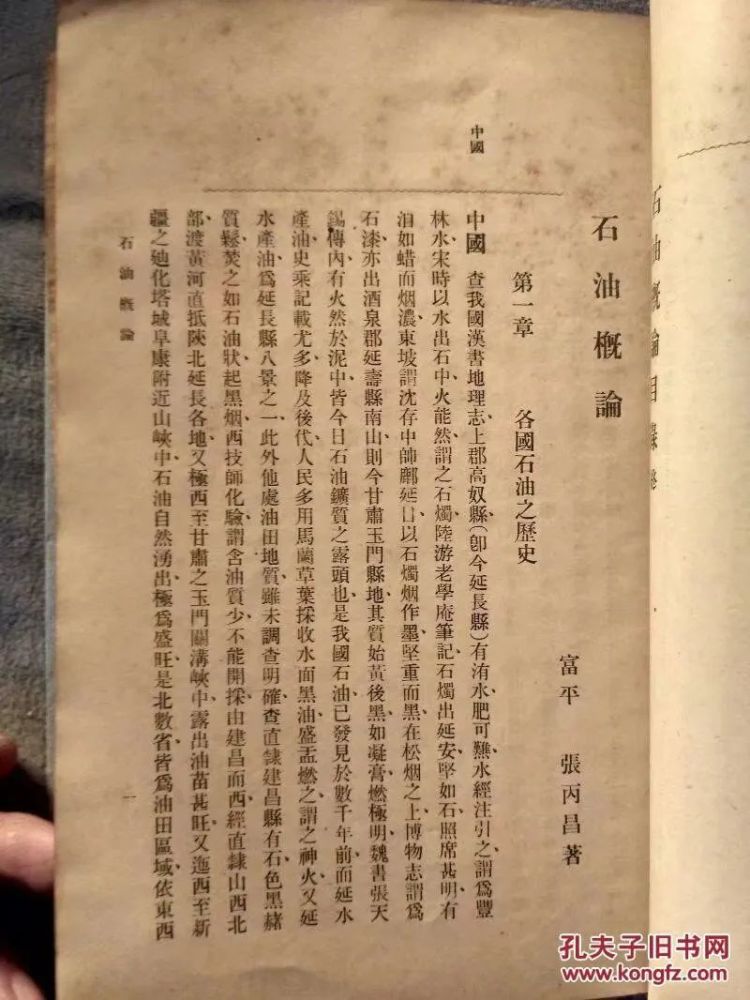 石油概論目錄終
石油概論
富平 張丙昌著
第一章 各國石油之歷史
中國
中國 查我國漢書地理志、上郡高奴縣(卽今延長縣)有洧水、肥可㸐、水經注引之、謂爲豐
林水、宋時以水出石中、火能然、謂之石燭、陸游老學庵筆記、石燭出延安、堅如石、照席甚明、有
泪如蜡而烟濃、東坡謂沈存中帥鄜延日、以石燭烟作墨、堅重而黑、在松烟之上、博物志謂爲
石漆、亦出酒泉郡延壽縣南山、則今甘肅玉門縣地、其質始黃後黑、如凝膏、燃極明、魏書張天
錫傳內、有火然於泥中、皆今日石油鑛質之露頭也、是我國石油、已發見於數千年前、而延水
產油、史乘記載尤多、降及後代、人民多用馬蘭草葉、採收水面黑油、盛盂燃之、謂之神火、又延
水產油、爲延長縣八景之一、此外他處油田地質、雖未調查明確、查直隸建昌縣、有石色黑赭
質鬆、焚之如石油狀、起黑烟、西技師化驗、謂含油質少、不能開採、由建昌而西、經直隸山西北
部、渡黃河、直抵陝北延長各地、又極西至甘肅之玉門關溝峽中、露出油苗甚旺、又迤西至新
疆之廸化塔城阜康附近山峽中、石油自然湧出、極爲盛旺、是北數省皆爲油田區域、依東西
石油概論
一
孔夫子旧书网
www.kongfz.com